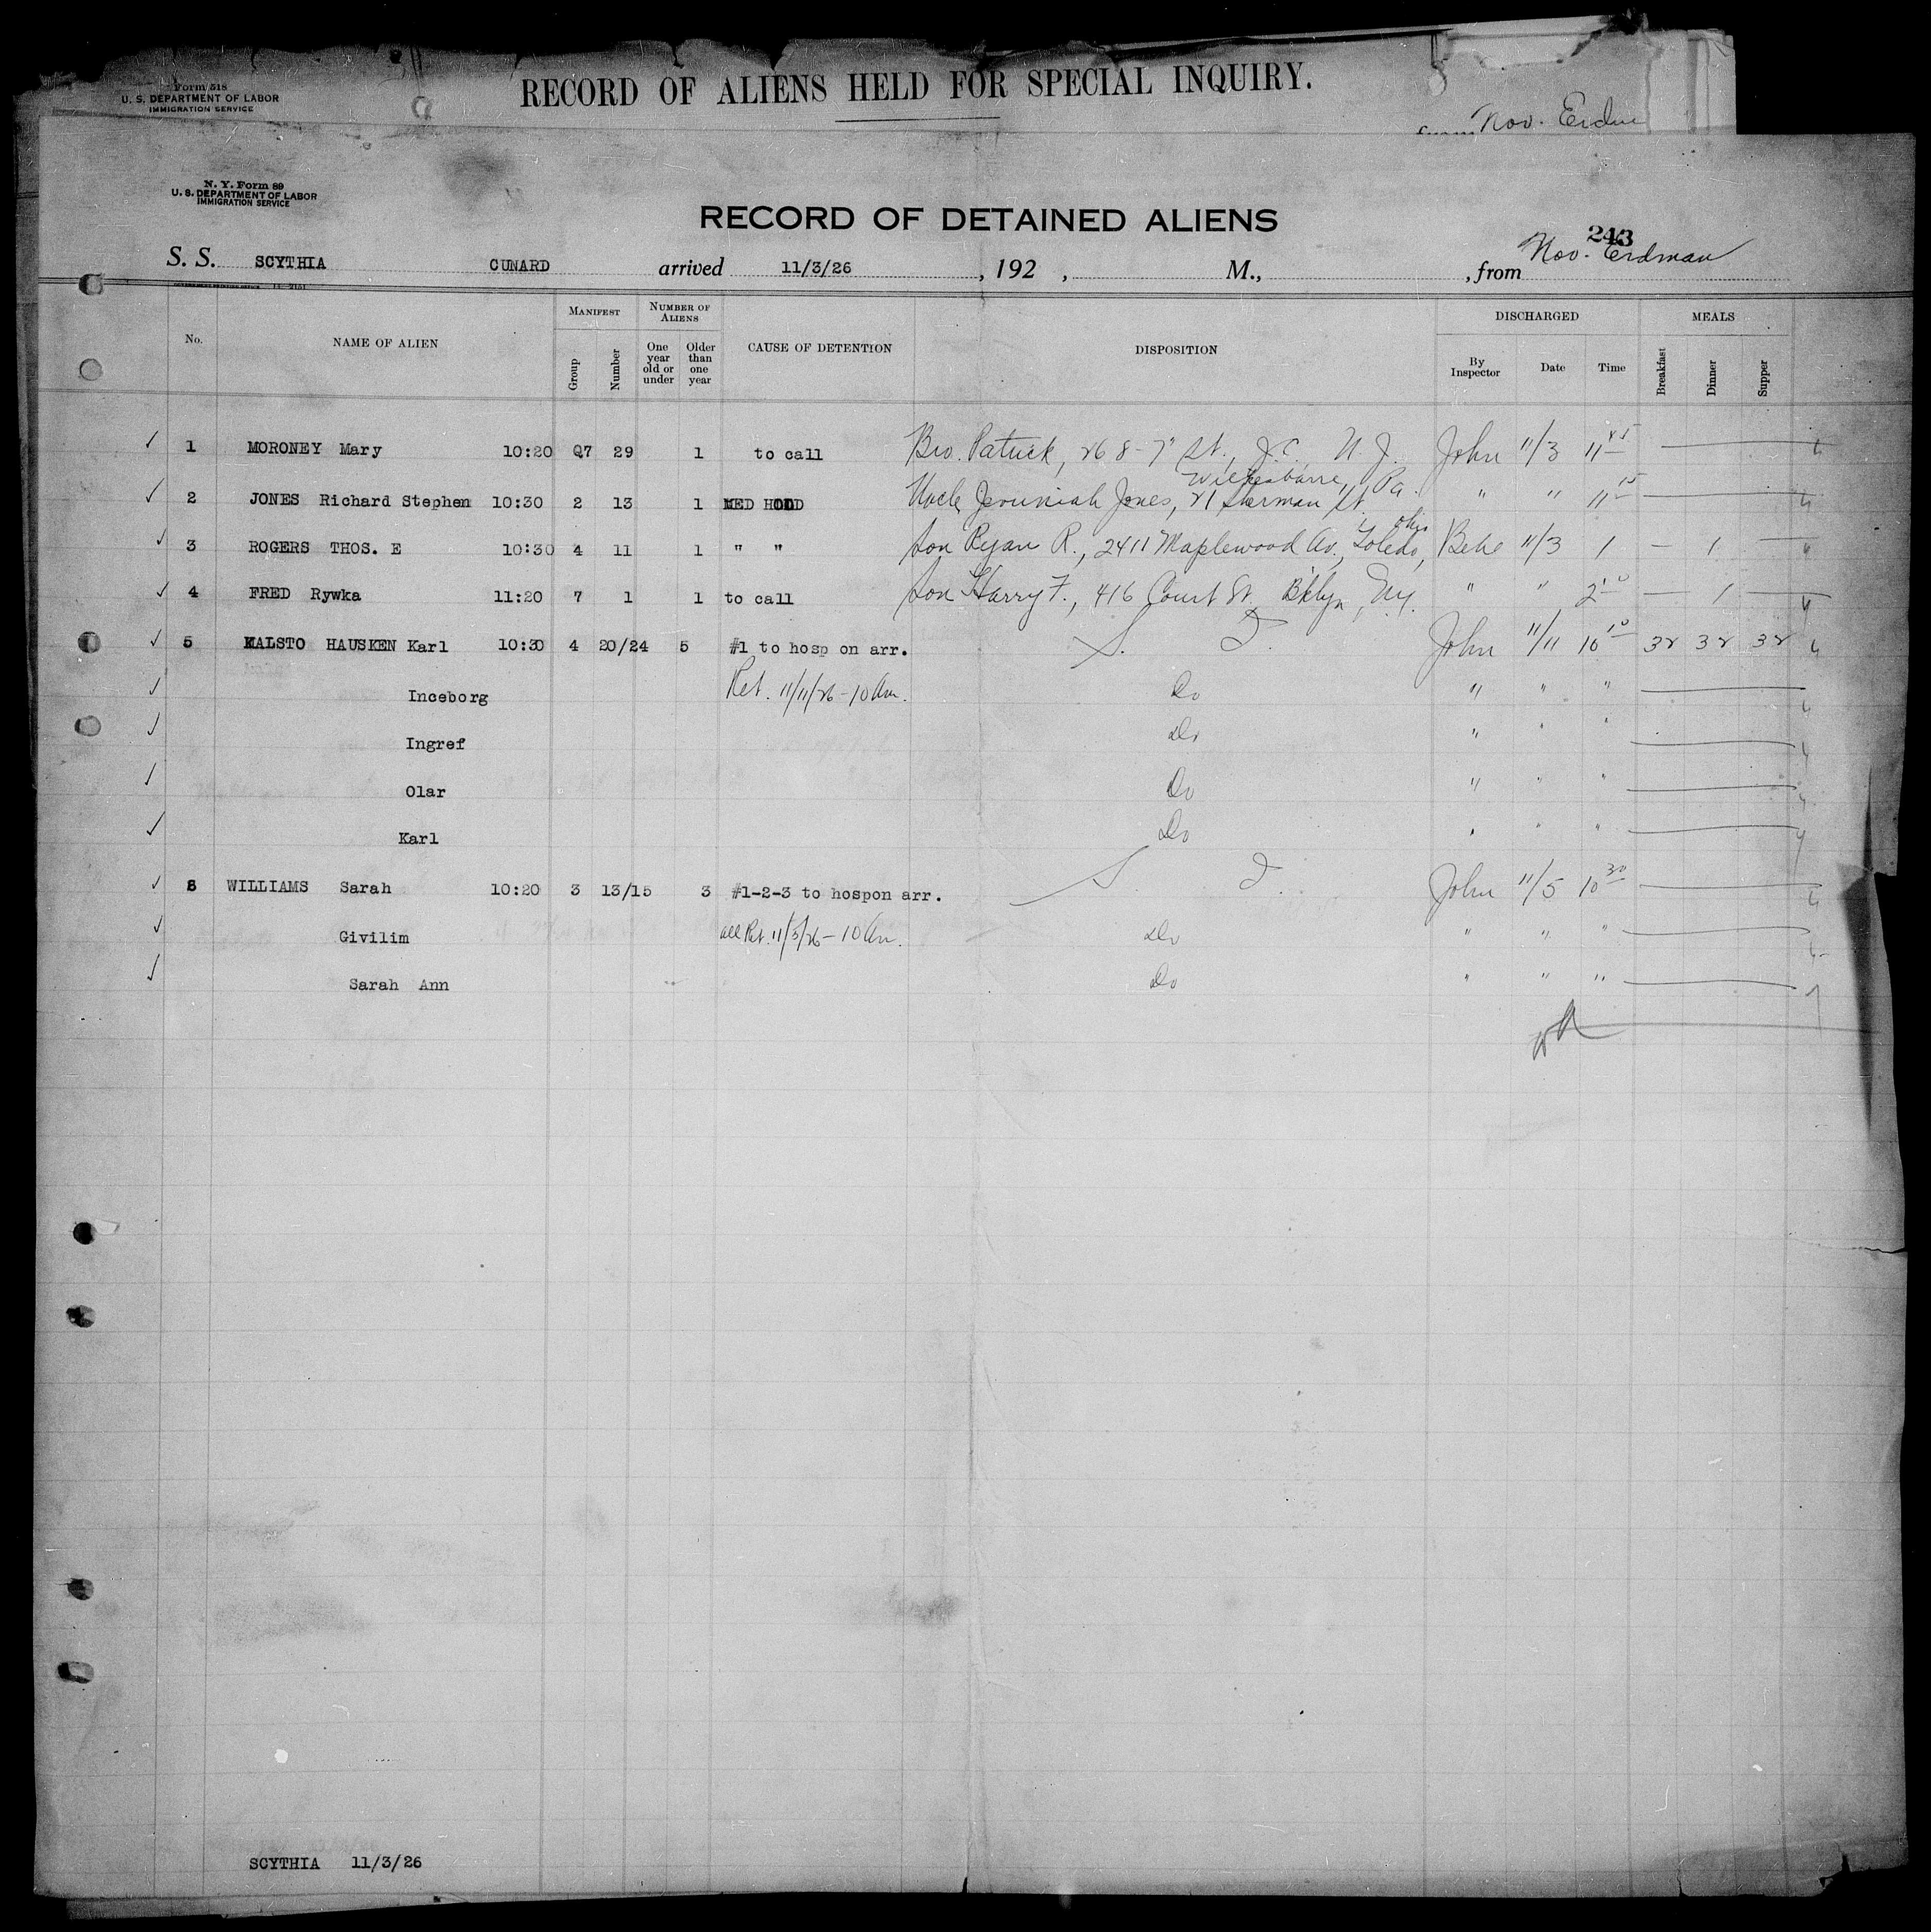 Form 518
U. S. DEPARTMENT OF LABOR
IMMIGRATION SERVICE
RECORD OF ALIENS HELD FOR SPECIAL INQUIRY.
from Nov. Erdm
N. Y. Form 89
U. S. DEPARTMENT OF LABOR
IMMIGRATION SERVICE
RECORD OF DETAINED ALIENS
243
S. S. SCYTHIA CUNARD arrived 11/3/26, 192 , M., , from Nov. Erdman
MANIFEST NUMBER OF ALIENS DISCHARGED MEALS
No. NAME OF ALIEN Group Number One year old or under Older than one year CAUSE OF DETENTION DISPOSITION By Inspector Date Time Breakfast Dinner Supper
✓ 1 MORONEY Mary 10:20 Q7 29 1 to call Bro. Patrick, 268-7" St., J.C. N.J. John 11/3 11 45
Wilkesbarre, Pa.
✓ 2 JONES Richard Stephen 10:30 2 13 1 MED HOLD Uncle Jeremiah Jones, 21 Sherman St. " " 11 15
Ohio
✓ 3 ROGERS THOS. E 10:30 4 11 1 " " Son Ryan R., 2411 Maplewood Av., Toledo, Behe 11/3 1 — 1 —
✓ 4 FRED Rywka 11:20 7 1 1 to call Son Harry F., 416 Court St, Bklyn, NY. " " 2 10 — 1 —
✓ 5 KALSTO HAUSKEN Karl 10:30 4 20/24 5 #1 to hosp on arr. S. I. John 11/11 10 10 32 32 32
✓ Inceborg Ret. 11/11/26 - 10 Am. Do " " "
✓ Ingref Do " " "
✓ Olar Do " " "
✓ Karl Do " " "
✓ 6 WILLIAMS Sarah 10:20 3 13/15 3 #1-2-3 to hospon arr. S. I. John 11/5 10 30
✓ Givilim all Ret. 11/5/26 - 10 Am. Do " " "
✓ Sarah Ann Do " " "
SCYTHIA 11/3/26